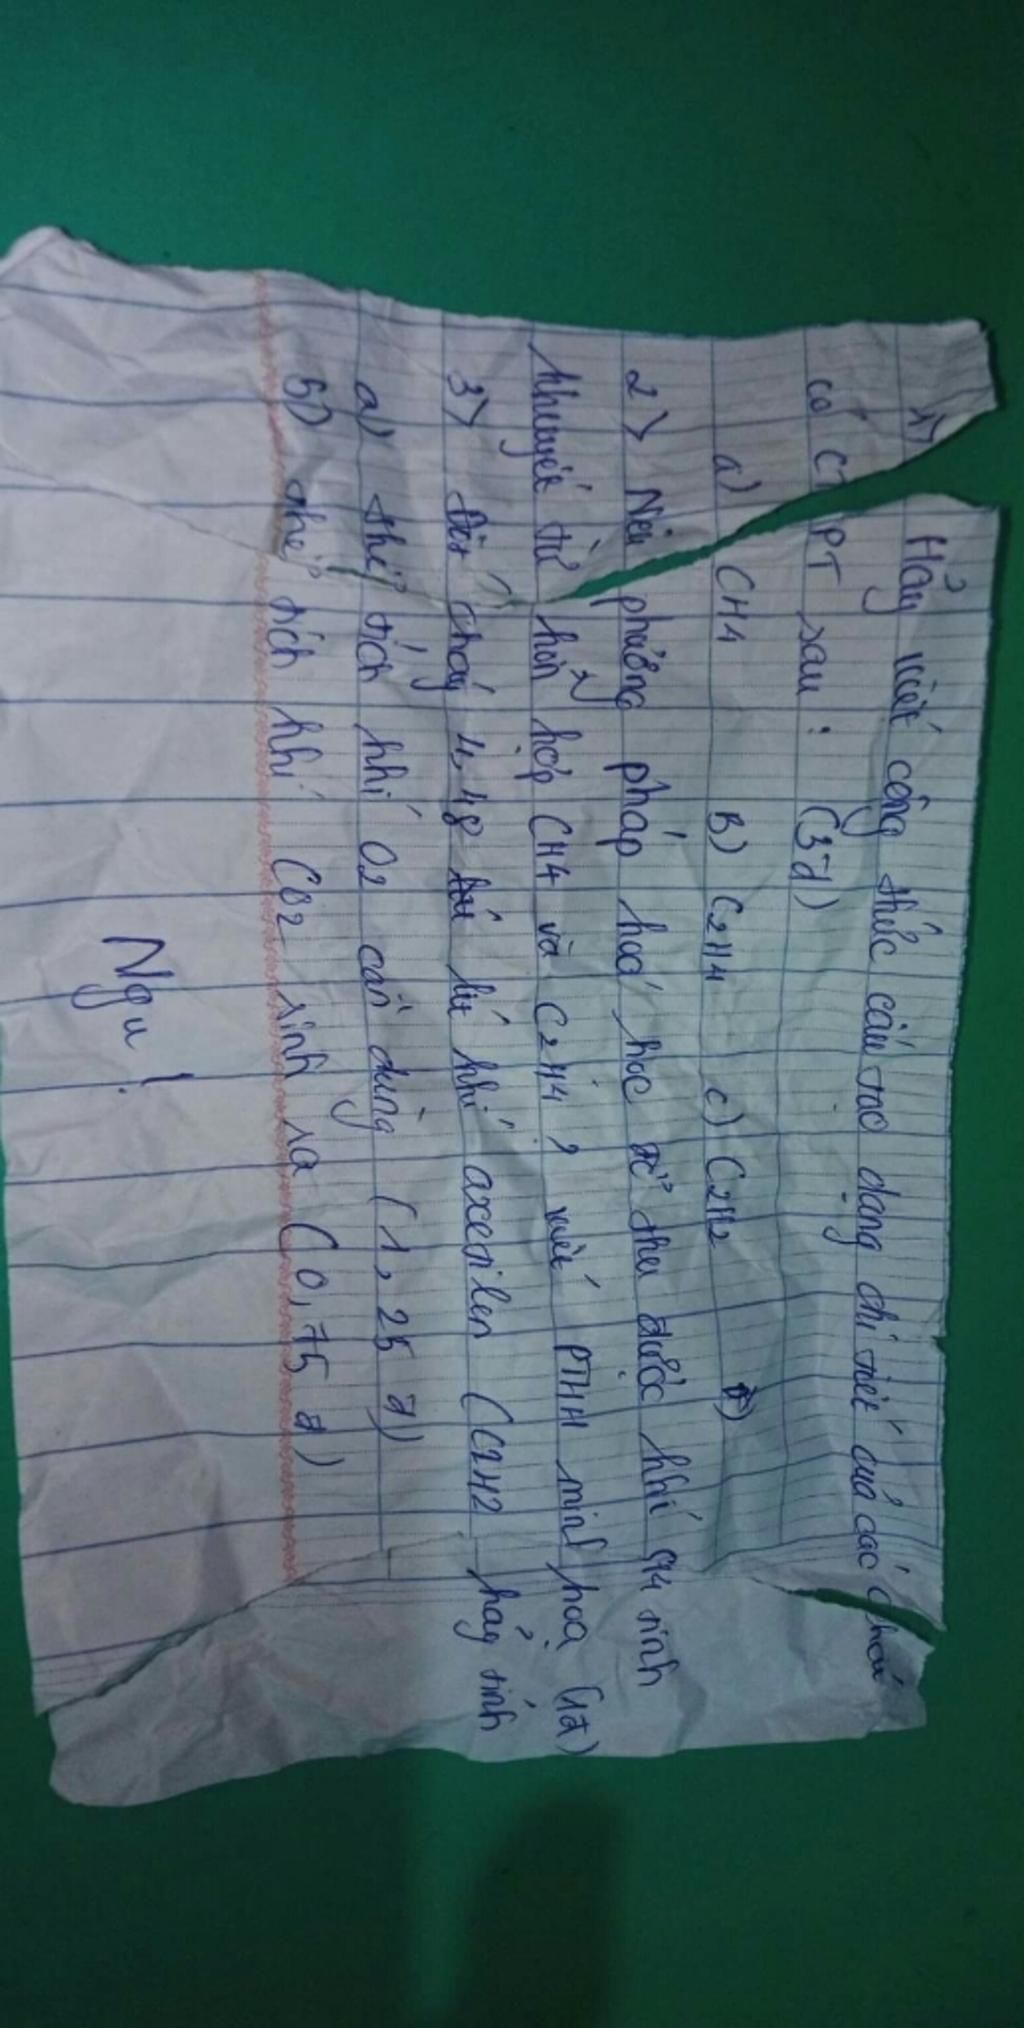 1) Hãy viết công thức cấu tạo dạng chi tiết của các chất
có CTPT sau : (3đ)
a) CH4 B) C2H4 c) C2H2
2) Nêu phương pháp hoá học để thu được khí CH4 tinh
khuyết từ hỗn hợp CH4 và C2H4 , viết PTHH minh hoạ (1đ)
3) Đốt cháy 4,48 lít khí axetilen (C2H2 hãy tính
a) thể tích khí O2 cần dùng (1,25 đ)
b) thể tích khí CO2 sinh ra (0,75 đ)
Ngu!